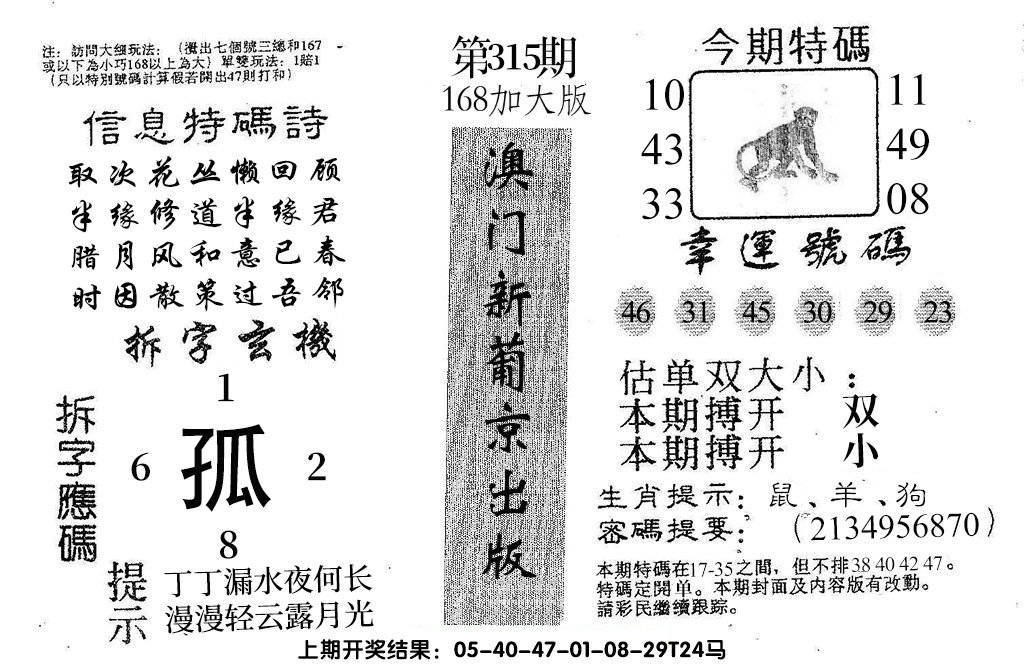 注：訪問大细玩法：（攪出七個號三總和167
或以下為小巧168以上為大）單雙玩法：1賠1
（只以特別號碼計算假若開出47則打和）
信息特碼詩
取次花丛懒回顾
半缘修道半缘君
腊月风和意已春
时因散策过吾邻
拆字玄機
拆字應碼
1
6
孤
2
8
提示
丁丁漏水夜何长
漫漫轻云露月光
第315期
168加大版
澳门新葡京出版
今期特碼
10
11
43
49
33
08
幸運號碼
46 31 45 30 29 23
估单双大小：
本期搏开 双
本期搏开 小
生肖提示：鼠、羊、狗
密碼提要：（2134956870）
本期特碼在17-35之間，但不排38 40 42 47。
特碼定開单。本期封面及内容版有改動。
請彩民繼續跟踪。
上期开奖结果：05-40-47-01-08-29T24马